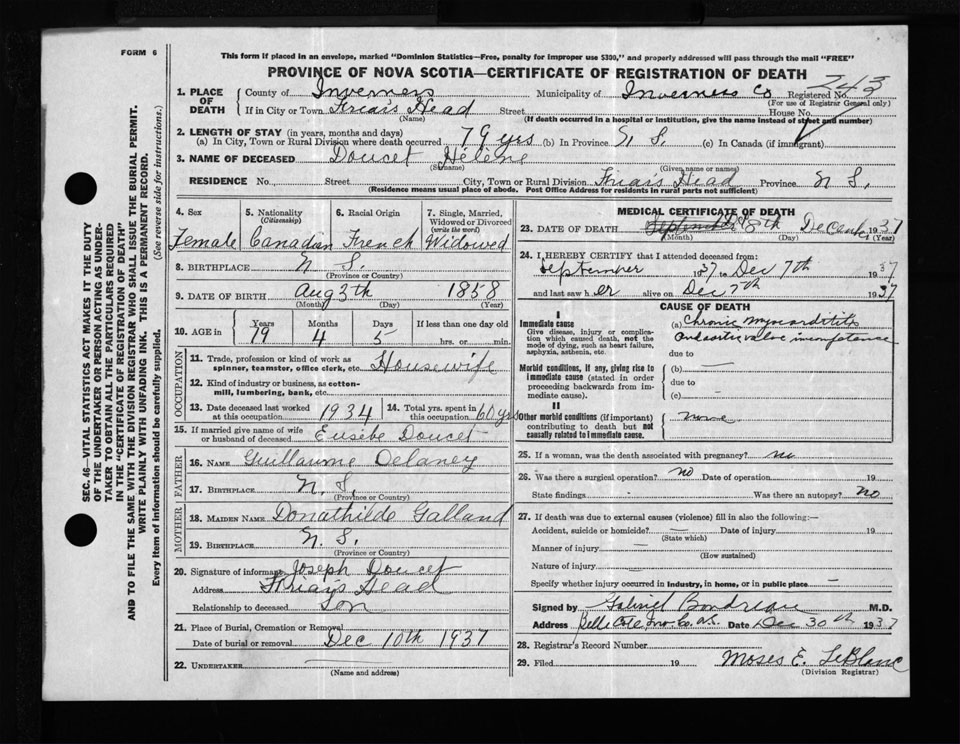 FORM 6
This form if placed in an envelope, marked "Dominion Statistics—Free, penalty for improper use $300," and properly addressed will pass through the mail "FREE"
PROVINCE OF NOVA SCOTIA—CERTIFICATE OF REGISTRATION OF DEATH
243
1. PLACE OF DEATH County of Inverness Municipality of Inverness Co Registered No.
(For use of Registrar General only)
If in City or Town Friar's Head Street House No.
(Name) (If death occurred in a hospital or institution, give the name instead of street and number)
2. LENGTH OF STAY (in years, months and days)
(a) In City, Town or Rural Division where death occurred 79 yrs (b) In Province N S. (c) In Canada (if immigrant)
3. NAME OF DECEASED Doucet Hélène
(Surname) (Given name or names)
RESIDENCE No. Street City, Town or Rural Division Friar's Head Province N S.
(Residence means usual place of abode. Post Office Address for residents in rural parts not sufficient)
4. Sex 5. Nationality (Citizenship) 6. Racial Origin 7. Single, Married, Widowed or Divorced (write the word)
Female Canadian French Widowed
8. BIRTHPLACE N S.
(Province or Country)
9. DATE OF BIRTH Aug 3th 1858
(Month) (Day) (Year)
10. AGE in Years Months Days If less than one day old
79 4 5 hrs. or min.
OCCUPATION
11. Trade, profession or kind of work as spinner, teamster, office clerk, etc. Housewife
12. Kind of industry or business, as cotton-mill, lumbering, bank, etc.
13. Date deceased last worked at this occupation 1934 14. Total yrs. spent in this occupation 60 yrs
15. If married give name of wife or husband of deceased Eusèbe Doucet
FATHER
16. NAME Guillaume Delaney
17. BIRTHPLACE N. S.
(Province or Country)
MOTHER
18. MAIDEN NAME Donathilde Galland
19. BIRTHPLACE N. S.
(Province or Country)
20. Signature of informant Joseph Doucet
Address Friar's Head
Relationship to deceased Son
21. Place of Burial, Cremation or Removal
Date of burial or removal Dec 10th 1937
22. UNDERTAKER
(Name and address)
MEDICAL CERTIFICATE OF DEATH
23. DATE OF DEATH September 8th December 1937
(Month) (Day) (Year)
24. I HEREBY CERTIFY that I attended deceased from:
September 1937 to Dec 7th 1937
and last saw her alive on Dec 7th 1937
CAUSE OF DEATH
I
Immediate cause
Give disease, injury or complication which caused death, not the mode of dying, such as heart failure, asphyxia, asthenia, etc.
(a) Chronic myocarditis
and aortic valve incompetence
due to
Morbid conditions, if any, giving rise to immediate cause (stated in order proceeding backwards from immediate cause).
(b)
due to
(c)
II
Other morbid conditions (if important) contributing to death but not causally related to immediate cause.
None
25. If a woman, was the death associated with pregnancy? no
26. Was there a surgical operation? no Date of operation 19
State findings Was there an autopsy? No
27. If death was due to external causes (violence) fill in also the following:—
Accident, suicide or homicide? Date of injury 19
(State which)
Manner of injury
(How sustained)
Nature of injury
Specify whether injury occurred in industry, in home, or in public place
Signed by Gabriel Boudreau M.D.
Address Belle Cote Inv. Co. N.S. Date Dec 30th 1937
28. Registrar's Record Number
29. Filed 19 Moses E. LeBlanc
(Division Registrar)
SEC. 46—VITAL STATISTICS ACT MAKES IT THE DUTY
OF THE UNDERTAKER OR PERSON ACTING AS UNDER-
TAKER TO OBTAIN ALL THE PARTICULARS REQUIRED
IN THE "CERTIFICATE OF REGISTRATION OF DEATH"
AND TO FILE THE SAME WITH THE DIVISION REGISTRAR WHO SHALL ISSUE THE BURIAL PERMIT.
WRITE PLAINLY WITH UNFADING INK. THIS IS A PERMANENT RECORD.
Every item of information should be carefully supplied. (See reverse side for instructions.)